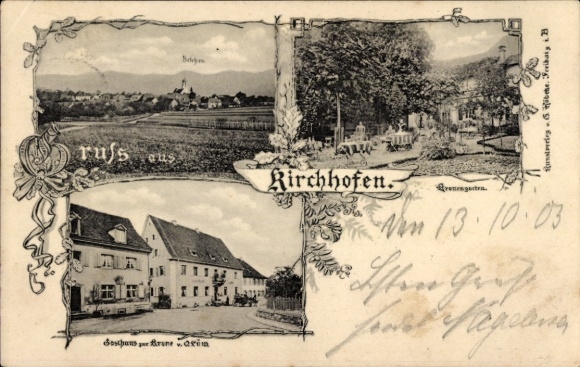 Belchen.
Gruss aus
Kirchhofen.
Kronengarten.
Kunstverlag v. G. Röbcke, Freiburg i. B
Gasthaus zur Krone v.
den 13. 10 03
sendet